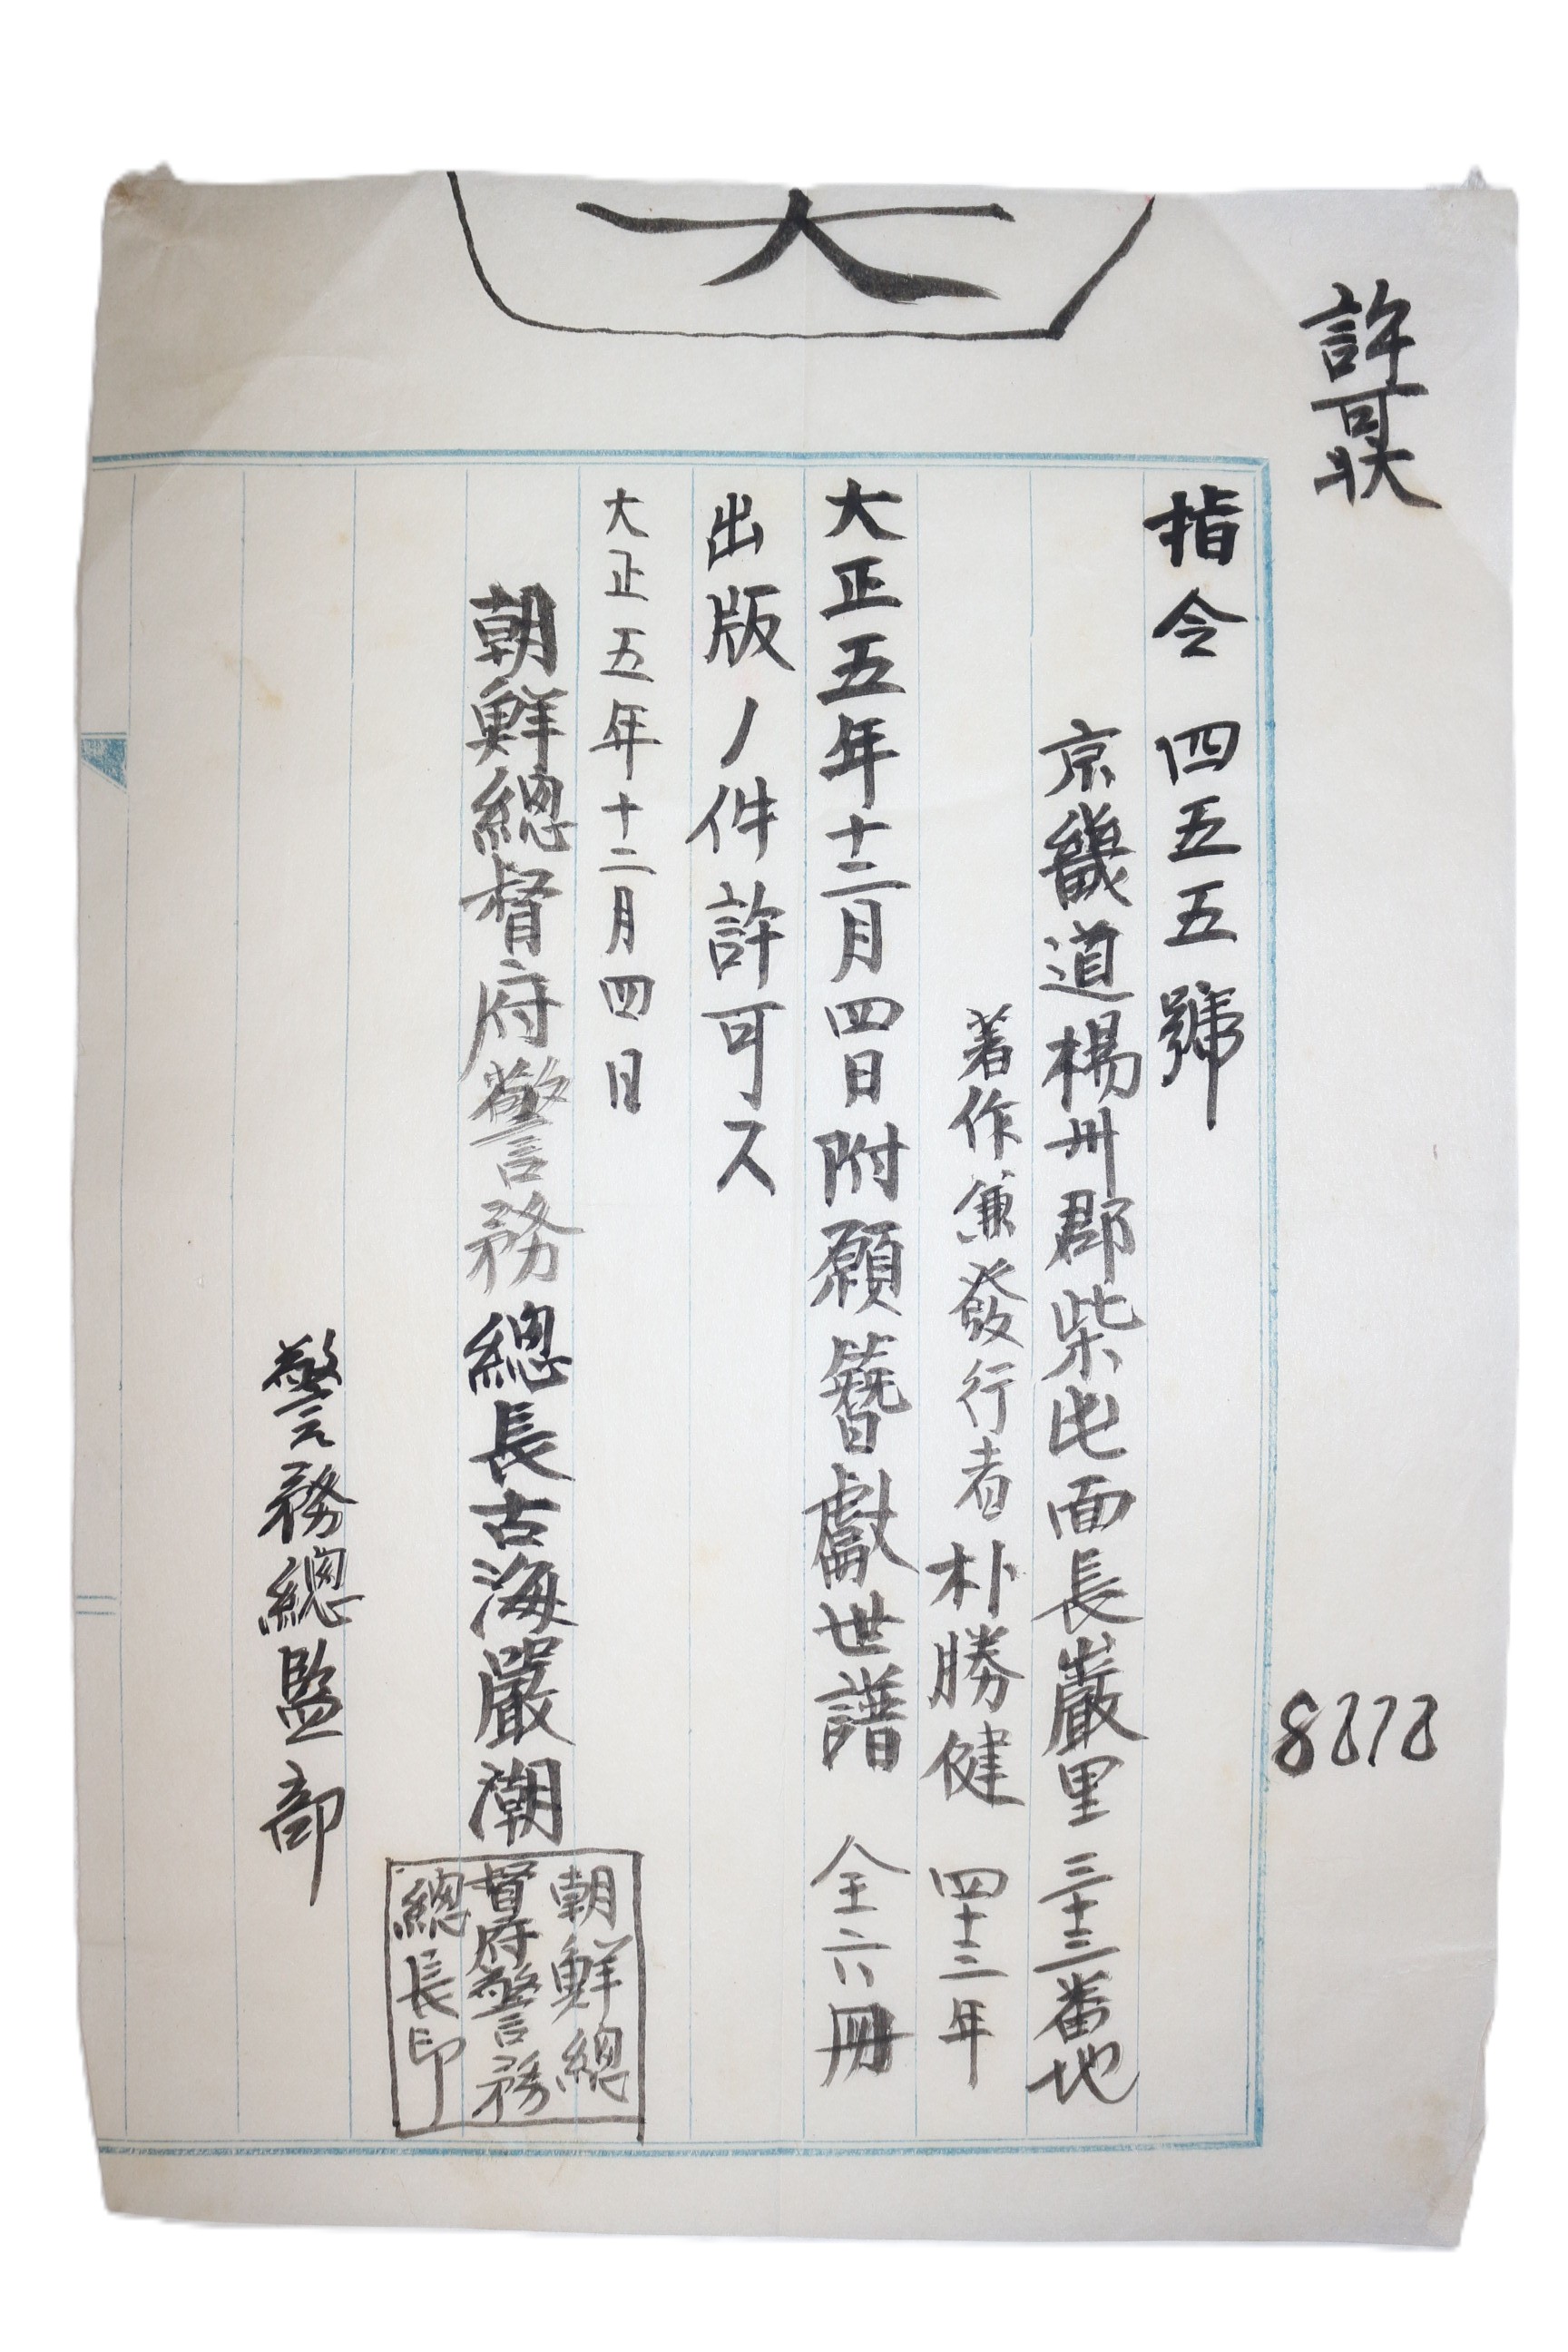 許可狀
大
指令 四五五號
京畿道楊州郡柴屯面長巖里三十三番地
著作兼發行者朴勝健 四十三年
大正五年十二月四日附願簪獻世譜 全六冊
出版ノ件許可ス
大正五年十二月四日
朝鮮總督府警務總長古海嚴潮
朝鮮總
督府警務
總長印
警務總監部